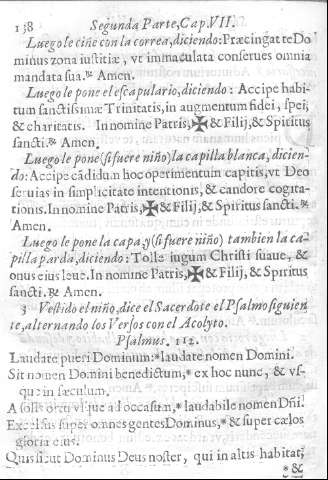 138 Segunda Parte, Cap. VII.
Luego le ciñe con la correa, diciendo: Præcingat te Do-
minus zona iustitiæ, vt immaculata conserues omnia
mandata sua. ℟ Amen.
Luego le pone el escapulario, diciendo: Accipe habi-
tum sanctissimæ Trinitatis, in augmentum fidei, spei,
& charitatis. In nomine Patris, ✠ & Filij, & Spiritus
sancti. ℟ Amen.
Luego le pone (si fuere niño) la capilla blanca, dicien-
do: Accipe cãdidum hoc operimentum capitis, vt Deo
seruias in simplicitate intentionis, & candore cogita-
tionis. In nomine Patris, ✠ & Filij, & Spiritus sancti. ℟
Amen.
Luego le pone la capa, y (si fuere niño) tambien la ca-
pilla parda, diciendo: Tolle iugum Christi suaue, &
onus eius leue. In nomine Patris, ✠ & Filij, & Spiritus
sancti. ℟ Amen.
3 Vestido el niño, dice el Sacerdote el Psalmo siguien
te, alternando los Versos con el Acolyto.
Psalmus. 112.
Laudate pueri Dominum: * laudate nomen Domini.
Sit nomen Domini benedictum, * ex hoc nunc, & vs-
que in sæculum.
A solis ortu vsque ad occasum, * laudabile nomen Dñi.
Excelsus super omnes gentes Dominus, * & super cælos
gloria eius.
Quis sicut Dominus Deus noster, qui in altis habitat,
* &